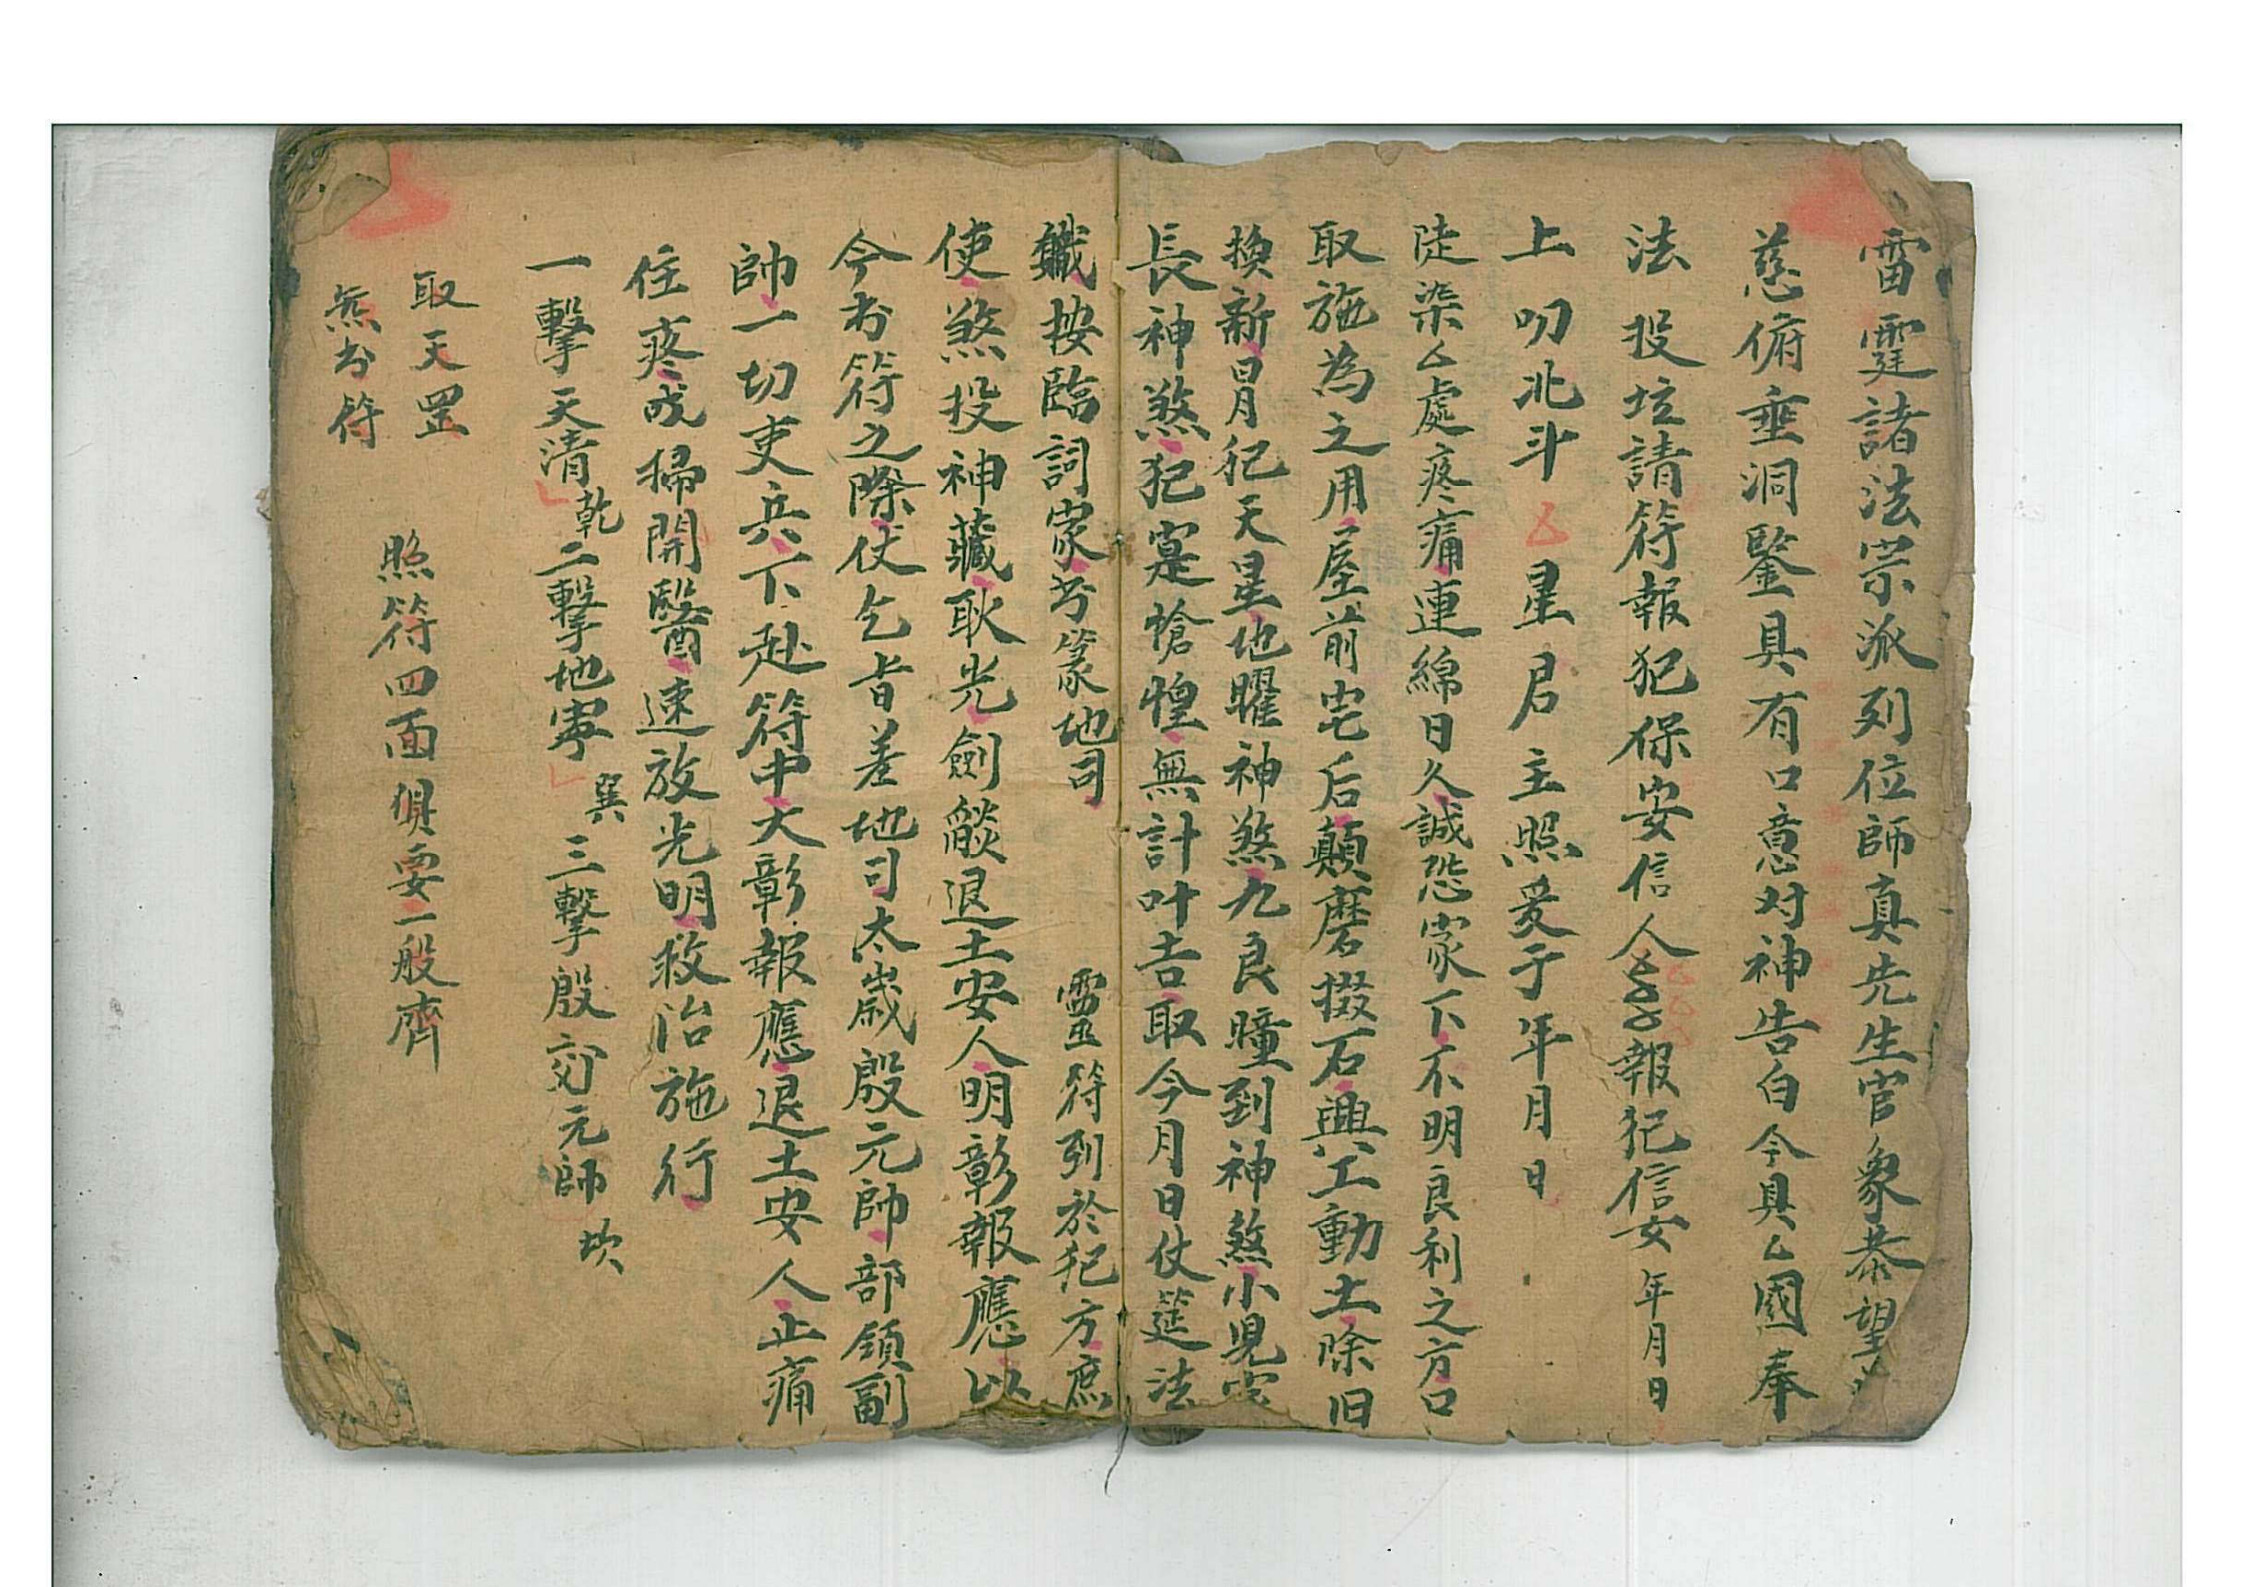 雷霆諸法宗派列位師真先生官象恭望
慈俯垂洞鑒具有口意对神告白今具厶國奉
法投坛請符報犯保安信人 報犯信女 年月日
上叨北斗厶星君主照爰于年月日
陡染厶處疼痛連綿日久誠恐家下不明良利之方口
取施為之用屋前宅后顛磨掇石興工動土除旧
换新冒犯天星地曜神煞九良瞳到神煞小児
長神煞犯寔愴惶無計叶吉取今月日仗筵法
職按臨詞家书篆地司 靈符列於犯方庶
使煞投神藏耿光劍燄退土安人明彰報應以
今书符之際仗乞旨差地司太歲殷元帅部領副
帥一切吏兵下赴符中大彰報應退土安人止痛
住疼戍掃開醫速放光明救治施行
一擊天清乾二擊地寧巽三擊殷郊元帥坎
取天罡
炁书符
照符四面俱要一般齊